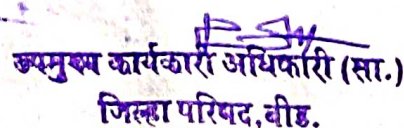 उपमुख्य कार्यकारी अधिकारी (सा.)
जिल्हा परिषद, बीड.